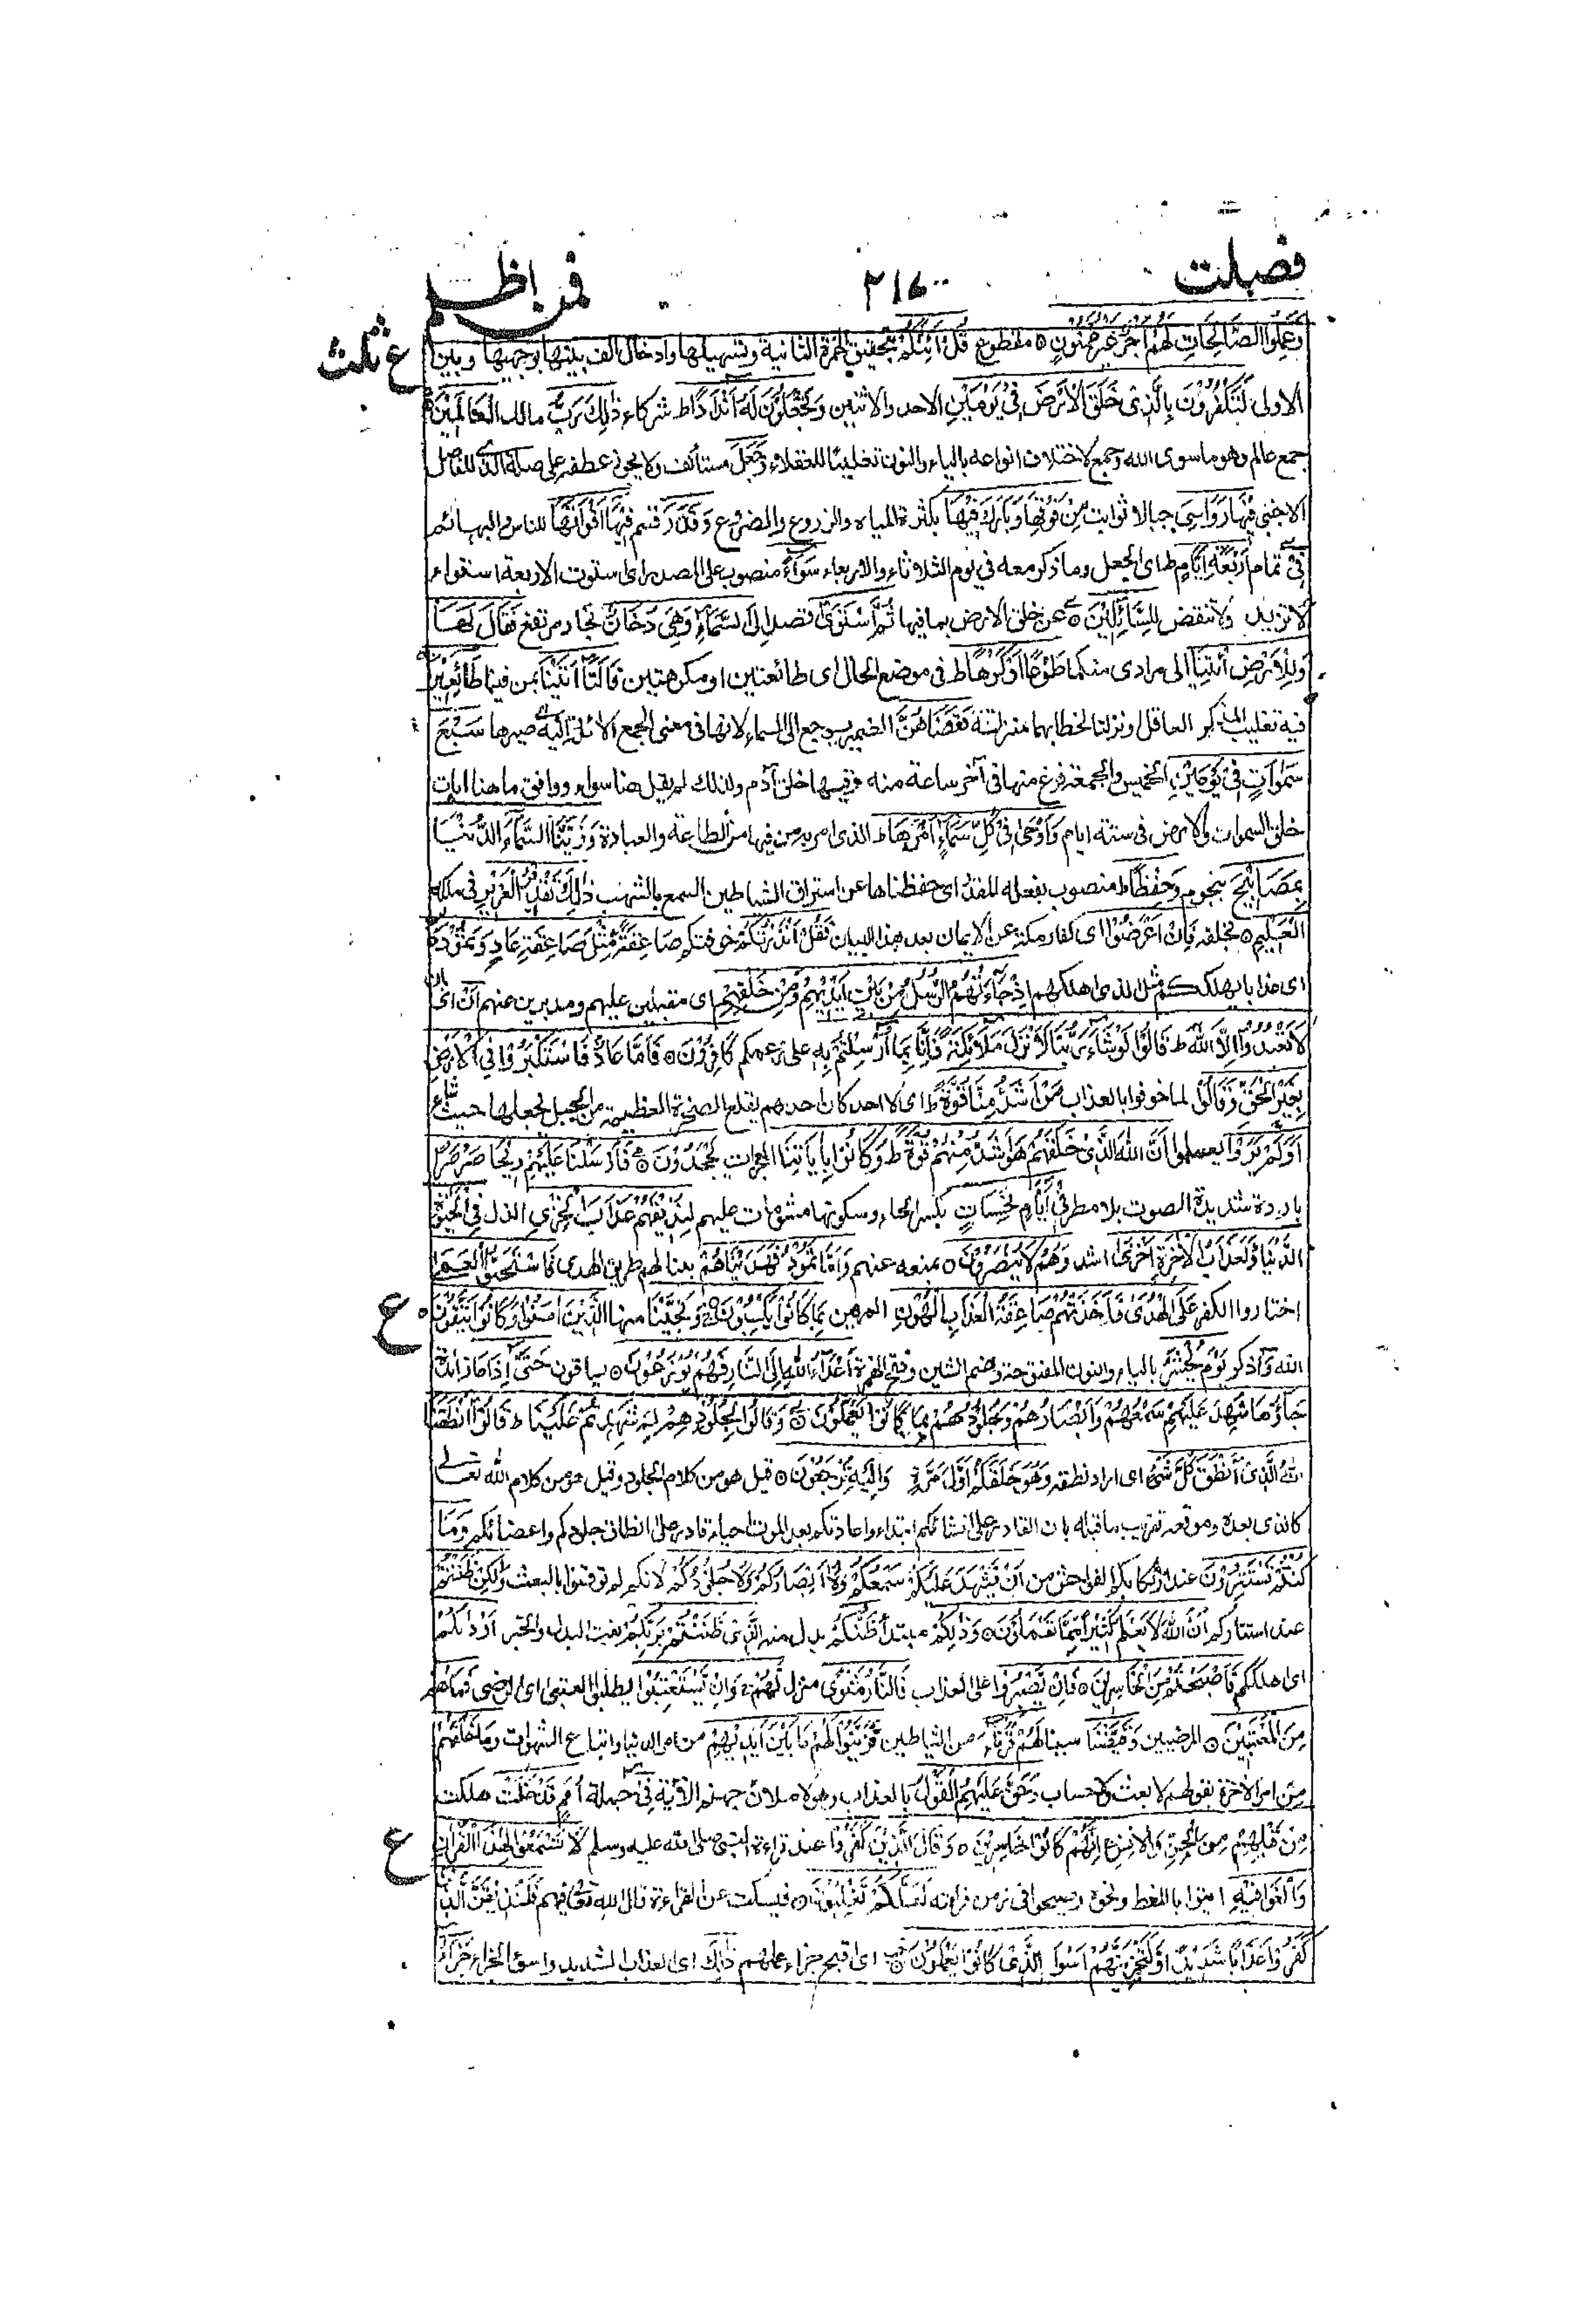 فصلت ٢١٧ فمن اظلم
وَعَمِلُوا الصَّالِحَاتِ لَهُمْ أَجْرٌ غَيْرُ مَمْنُونٍ ○ مقطوع قُلْ أَئِنَّكُمْ بتحقيق الهمزة الثانية وتسهيلها وادخال الف بينها بوجهيها وبين
ع ثلث
الاولى لَتَكْفُرُوْنَ بِالَّذِىْ خَلَقَ الْاَرْضَ فِىْ يَوْمَيْنِ الاحد والاثنين وَتَجْعَلُوْنَ لَهٗ اَنْدَادًا ط شركاء ذٰلِكَ رَبُّ مالك الْعَالَمِيْنَ
جمع عالم وهو ما سوى الله وجمع لاختلاف انواعه بالياء والنون تغليبا للعقلاء وَجَعَلَ مستأنف ولا يجوز عطفه على صلة الذى للفاصل
الاجنبى فِيْهَا رَوَاسِىَ جبالا ثوابت مِنْ فَوْقِهَا وَبَارَكَ فِيْهَا بكثرة المياه والزروع والضروع وَقَدَّرَ قسم فِيْهَا اَقْوَاتَهَا للناس والبهائم
فِىْ تمام اَرْبَعَةِ اَيَّامٍ ط اى الجعل وما ذكر معه فى يوم الثلاثاء والاربعاء سَوَآءً منصوب على المصدر اى استوت الاربعة استواء
لا تزيد ولا تنقص لِلسَّآئِلِيْنَ ○ عن خلق الارض بما فيها ثُمَّ اسْتَوٰى قصد اِلَى السَّمَآءِ وَهِىَ دُخَانٌ بخار مرتفع فَقَالَ لَهَا
وَلِلْاَرْضِ ائْتِيَا الى مرادى منكما طَوْعًا اَوْ كَرْهًا ط فى موضع الحال اى طائعتين او مكرهتين قَالَتَا اَتَيْنَا بمن فينا طَآئِعِيْنَ
فيه تغليب المذكر العاقل او نزلتا لخطابهما منزلته فَقَضٰهُنَّ الضمير يرجع الى السماء لانها فى معنى الجمع الائلة اليه صيرها سَبْعَ
سَمٰوَاتٍ فِىْ يَوْمَيْنِ الخميس والجمعة فرغ منها فى آخر ساعة منه وفيها خلق آدم ولذلك لم يقل هنا سواء ووافق ما هنا ايات
خلق السموات والارض فى ستة ايام وَاَوْحٰى فِىْ كُلِّ سَمَآءٍ اَمْرَهَا ط الذى امر به من فيها من الطاعة والعبادة وَزَيَّنَّا السَّمَآءَ الدُّنْيَا
بِمَصَابِيْحَ بنجوم وَحِفْظًا ط منصوب بفعله المقدر اى حفظناها عن استراق الشياطين السمع بالشهب ذٰلِكَ تَقْدِيْرُ الْعَزِيْزِ فى ملكه
الْعَلِيْمِ ○ بخلقه فَاِنْ اَعْرَضُوْا اى كفار مكة عن الايمان بعد هذا البيان فَقُلْ اَنْذَرْتُكُمْ خوفتكم صَاعِقَةً مِّثْلَ صَاعِقَةِ عَادٍ وَّثَمُوْدَ
اى عذابا يهلككم مثل الذى اهلكهم اِذْ جَآءَتْهُمُ الرُّسُلُ مِنْ بَيْنِ اَيْدِيْهِمْ وَمِنْ خَلْفِهِمْ اى مقبلين عليهم ومدبرين عنهم اَنْ اى بان
لَا تَعْبُدُوْا اِلَّا اللهَ ط قَالُوْا لَوْ شَآءَ رَبُّنَا لَاَنْزَلَ مَلَآئِكَةً فَاِنَّا بِمَا اُرْسِلْتُمْ بِهٖ على زعمكم كَافِرُوْنَ ○ فَاَمَّا عَادٌ فَاسْتَكْبَرُوْا فِى الْاَرْضِ
بِغَيْرِ الْحَقِّ وَقَالُوْا لما خوفوا بالعذاب مَنْ اَشَدُّ مِنَّا قُوَّةً ط اى لا احد كان احدهم يقلع الصخرة العظيمة من الجبل يجعلها حيث شاء
اَوَلَمْ يَرَوْا يعلموا اَنَّ اللهَ الَّذِىْ خَلَقَهُمْ هُوَ اَشَدُّ مِنْهُمْ قُوَّةً ط وَكَانُوْا بِاٰيَاتِنَا المعجزات يَجْحَدُوْنَ ○ فَاَرْسَلْنَا عَلَيْهِمْ رِيْحًا صَرْصَرًا
باردة شديدة الصوت بلا مطر فِىْ اَيَّامٍ نَّحِسَاتٍ بكسر الحاء وسكونها مشؤمات عليهم لِنُذِيْقَهُمْ عَذَابَ الْخِزْىِ الذل فِى الْحَيٰوةِ
الدُّنْيَا وَلَعَذَابُ الْاٰخِرَةِ اَخْزٰى اشد وَهُمْ لَا يُنْصَرُوْنَ ○ بمنعه عنهم وَاَمَّا ثَمُوْدُ فَهَدَيْنَاهُمْ بينا لهم طريق الهدى فَاسْتَحَبُّوا الْعَمٰى
اختاروا الكفر عَلَى الْهُدٰى فَاَخَذَتْهُمْ صَاعِقَةُ الْعَذَابِ الْهُوْنِ المهين بِمَا كَانُوْا يَكْسِبُوْنَ ○ وَنَجَّيْنَا منها الَّذِيْنَ اٰمَنُوْا وَكَانُوْا يَتَّقُوْنَ ○
ع
الله وَ اذكر يَوْمَ يُحْشَرُ بالياء والنون المفتوحة وضم الشين وفتح الهمزة اَعْدَآءُ اللهِ اِلَى النَّارِ فَهُمْ يُوْزَعُوْنَ ○ يساقون حَتّٰى اِذَا مَا زائدة
جَآؤُهَا شَهِدَ عَلَيْهِمْ سَمْعُهُمْ وَاَبْصَارُهُمْ وَجُلُوْدُهُمْ بِمَا كَانُوْا يَعْمَلُوْنَ ○ وَقَالُوْا لِجُلُوْدِهِمْ لِمَ شَهِدْتُّمْ عَلَيْنَا ط قَالُوْا اَنْطَقَنَا
اللهُ الَّذِىْ اَنْطَقَ كُلَّ شَىْءٍ اى اراد نطقه وَهُوَ خَلَقَكُمْ اَوَّلَ مَرَّةٍ وَّاِلَيْهِ تُرْجَعُوْنَ ○ قيل هو من كلام الجلود وقيل هو من كلام الله تعالى
كالذى بعده وموقعه تقريب ما قبله بان القادر على انشائكم ابتداء واعادتكم بعد الموت احياء قادر على انطاق جلودكم واعضائكم وَمَا
كُنْتُمْ تَسْتَتِرُوْنَ عند ارتكابكم الفواحش من اَنْ يَّشْهَدَ عَلَيْكُمْ سَمْعُكُمْ وَلَا اَبْصَارُكُمْ وَلَا جُلُوْدُكُمْ لانكم لم توقنوا بالبعث وَلٰكِنْ ظَنَنْتُمْ
عند استتاركم اَنَّ اللهَ لَا يَعْلَمُ كَثِيْرًا مِّمَّا تَعْمَلُوْنَ ○ وَذٰلِكُمْ مبتدأ ظَنُّكُمُ بدل منه الَّذِىْ ظَنَنْتُمْ بِرَبِّكُمْ نعت البدل والخبر اَرْدٰىكُمْ
اى اهلككم فَاَصْبَحْتُمْ مِّنَ الْخَاسِرِيْنَ ○ فَاِنْ يَّصْبِرُوْا على العذاب فَالنَّارُ مَثْوًى منزل لَّهُمْ وَاِنْ يَّسْتَعْتِبُوْا يطلبوا العتبى اى الرضى فَمَا هُمْ
مِّنَ الْمُعْتَبِيْنَ ○ المرضيين وَقَيَّضْنَا سببنا لَهُمْ قُرَنَآءَ من الشياطين فَزَيَّنُوْا لَهُمْ مَّا بَيْنَ اَيْدِيْهِمْ من امر الدنيا واتباع الشهوات وَمَا خَلْفَهُمْ
من امر الاخرة بقولهم لا بعث ولا حساب وَحَقَّ عَلَيْهِمُ الْقَوْلُ بالعذاب وهو لاملأن جهنم الآية فِىْ جملة اُمَمٍ قَدْ خَلَتْ هلكت
مِنْ قَبْلِهِمْ مِّنَ الْجِنِّ وَالْاِنْسِ اِنَّهُمْ كَانُوْا خَاسِرِيْنَ ○ وَقَالَ الَّذِيْنَ كَفَرُوْا عند قراءة النبى صلى الله عليه وسلم لَا تَسْمَعُوْا لِهٰذَا الْقُرْاٰنِ
ع
وَالْغَوْا فِيْهِ ائتوا باللغط ونحوه وصيحوا فى زمن قراءته لَعَلَّكُمْ تَغْلِبُوْنَ ○ فيسكت عن القراءة قال الله تعالى فيهم فَلَنُذِيْقَنَّ الَّذِيْنَ
كَفَرُوْا عَذَابًا شَدِيْدًا وَّلَنَجْزِيَنَّهُمْ اَسْوَاَ الَّذِىْ كَانُوْا يَعْمَلُوْنَ ○ اى اقبح جزاء عملهم ذٰلِكَ اى العذاب الشديد واسوأ الجزاء جَزَآءُ